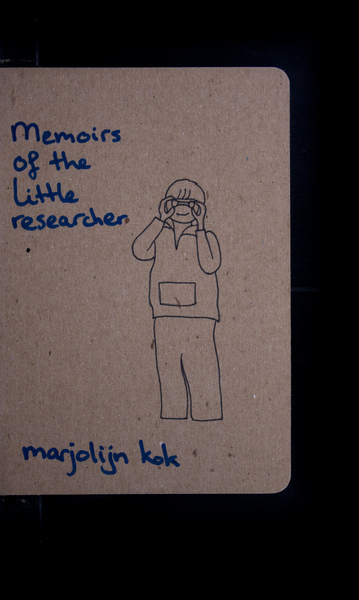 Memoirs
of the
Little
researcher
marjolijn kok